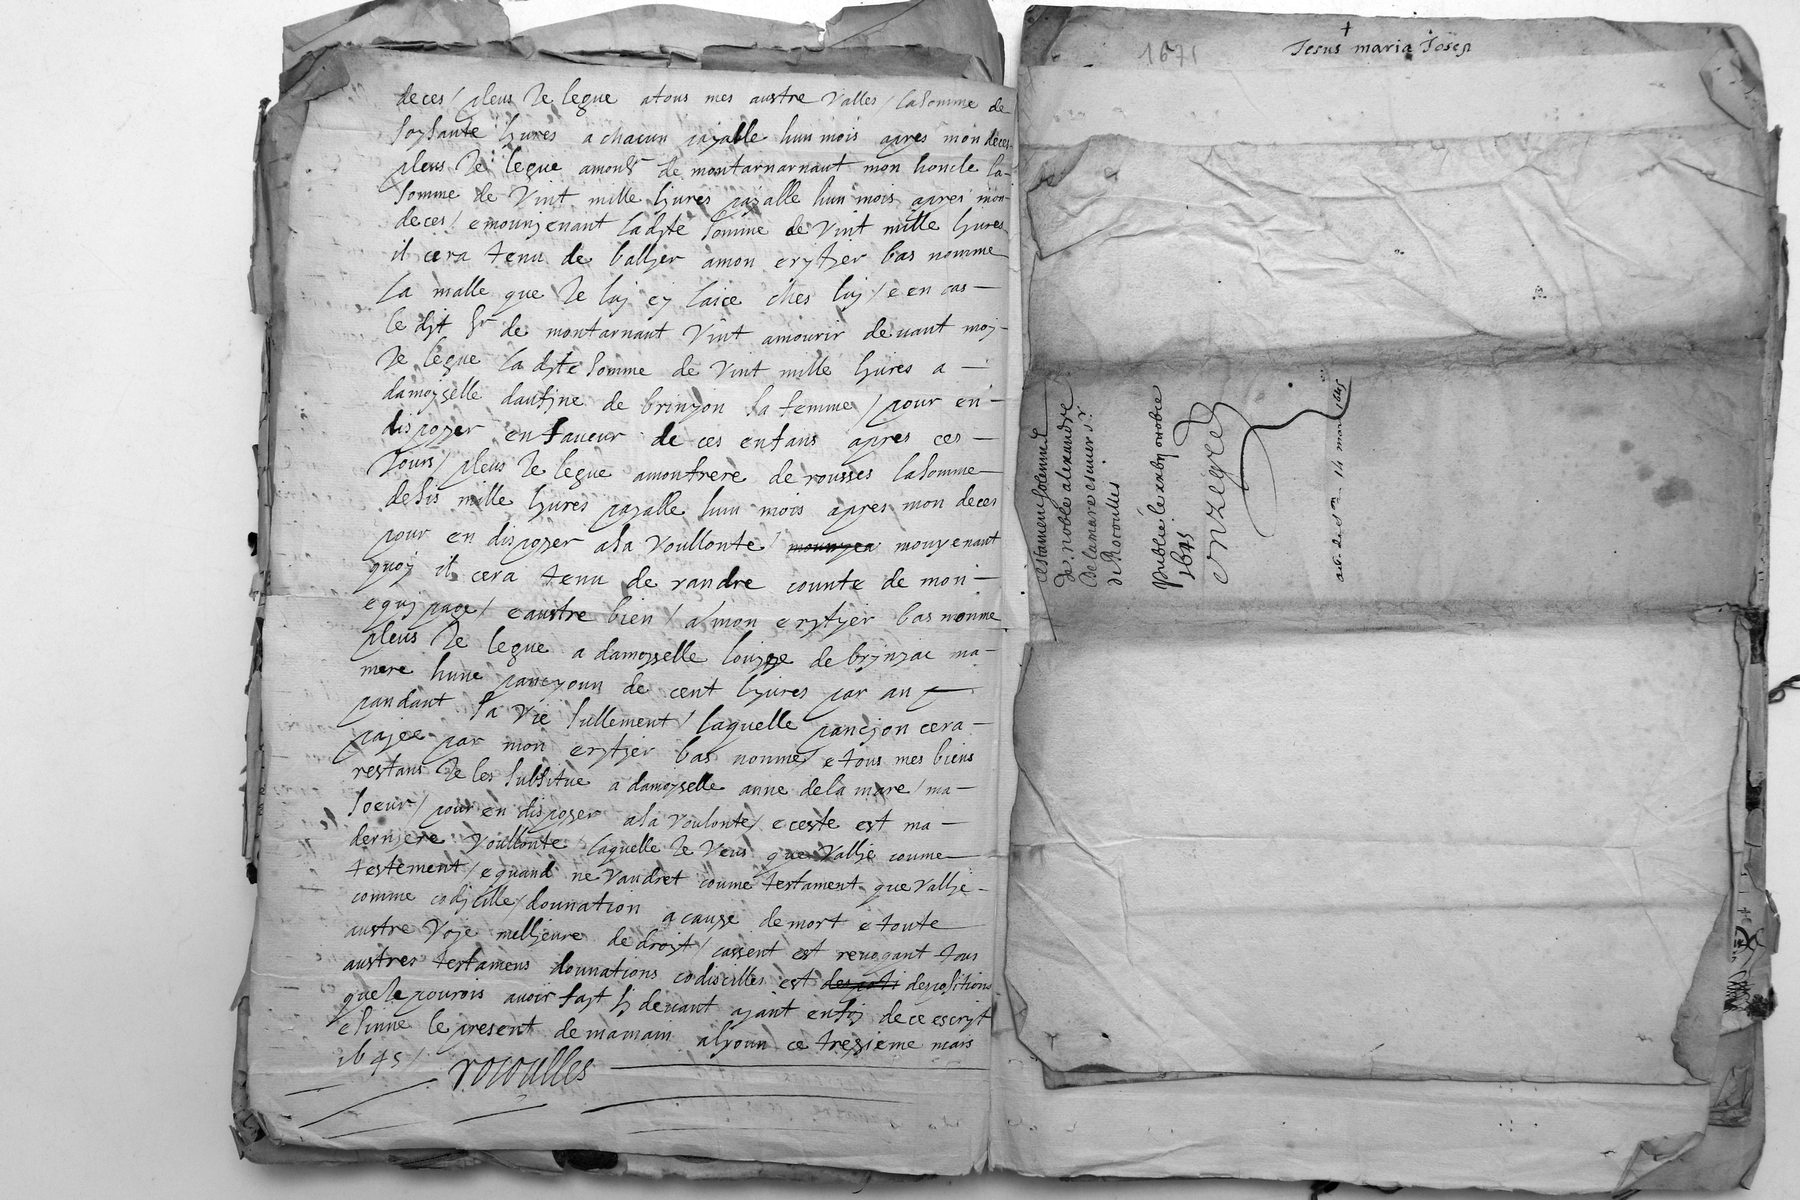 deces / pleus Je legue atous mes austre valles / la somme de
soysante livres a chacun payalle hun mois apres mon deces
pleus Je legue amonsr de montarnarnaut mon honcle la
somme de vint mille livres payalle hun mois apres mon
deces / emounjenant ladyte somme de vint mille livres
il cera tenu de ballier amon erytier bas nomme
la malle que Je luy ey laice ches luy / e en cas
le dyt sr de montarnaut vint amourir devant moy
Je legue ladyte somme de vint mille livres a
damoyselle daufine de brinyon sa femme / pour en
dispozer enfaveur de ces enfans apres ces
Jours / pleus Je legue amonfrere de rousses lasomme
desis mille livres payalle hun mois apres mon deces
pour en dispozer asa voullonte / mouyenant
quoy il cera tenu de randre counte de mon
equipage / eaustre bien / a mon erytyer bas nomme
pleus Je legue a damoyselle louyze de brynzac ma
mere hune pancyoun de cent livres par an
pandant sa vie sullement / laquelle pancjon cera
pajee par mon erytier bas nomme / etous mes biens
restans Je les substitue a damoyselle anne dela mare / ma
soeur / pour en dispozer asa voulonte / eceste est ma
derniere voullonte laquelle Je veus que vallie coume
testement / equand ne vaudret coume testament que vallie
comme codicille / dounation a cause demort etoute
austre voye mellieure dedroyt / cassent est revogant tous
austres testamens dounations codiscilles est despositions
queJe pourois avoir fayt si devant ayant enfoy dece escryt
esinne le present demamain alyoun ce tresieme mars
1645 /
rocoulles
1671
Jesus maria Josep
testament solemnel
de noble alexandre
de lamare escuier sr
de Rocoulles
Publié le xxbj octobre
1645
onzegred
14 mars 1645